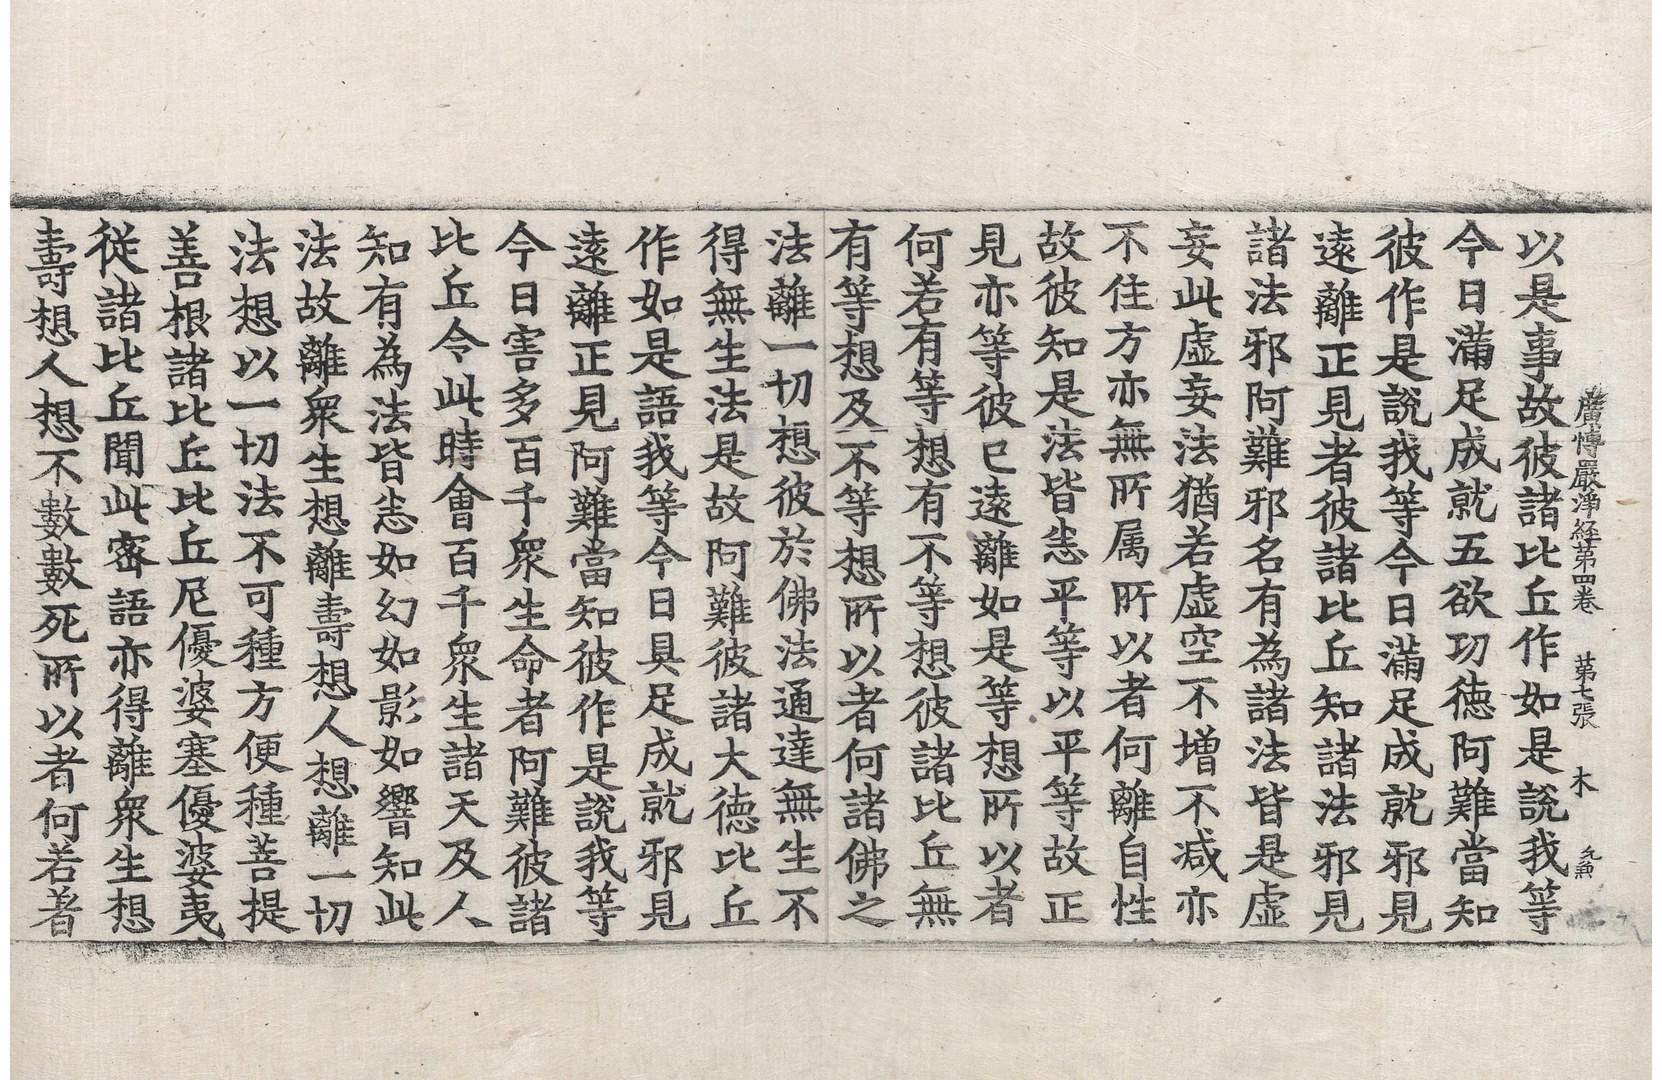 廣博嚴淨経第四卷 第七張 木
以是事故彼諸比丘作如是說我等
今日滿足成就五欲功德阿難當知
彼作是說我等今日滿足成就邪見
遠離正見者彼諸比丘知諸法邪見
諸法邪阿難邪名有為諸法皆是虛
妄此虛妄法猶若虛空不增不减亦
不住方亦無所属所以者何離自性
故彼知是法皆悉平等以平等故正
見亦等彼已遠離如是等想所以者
何若有等想有不等想彼諸比丘無
有等想及不等想所以者何諸佛之
法離一切想彼於佛法通達無生不
得無生法是故阿難彼諸大德比丘
作如是語我等今日具足成就邪見
遠離正見阿難當知彼作是說我等
今日害多百千眾生命者阿難彼諸
比丘令此時會百千眾生諸天及人
知有為法皆悉如幻如影如響知此
法故離眾生想離壽想人想離一切
法想以一切法不可種方便種菩提
善根諸比丘比丘尼優婆塞優婆夷
從諸比丘聞此密語亦得離眾生想
壽想人想不數數死所以者何若著